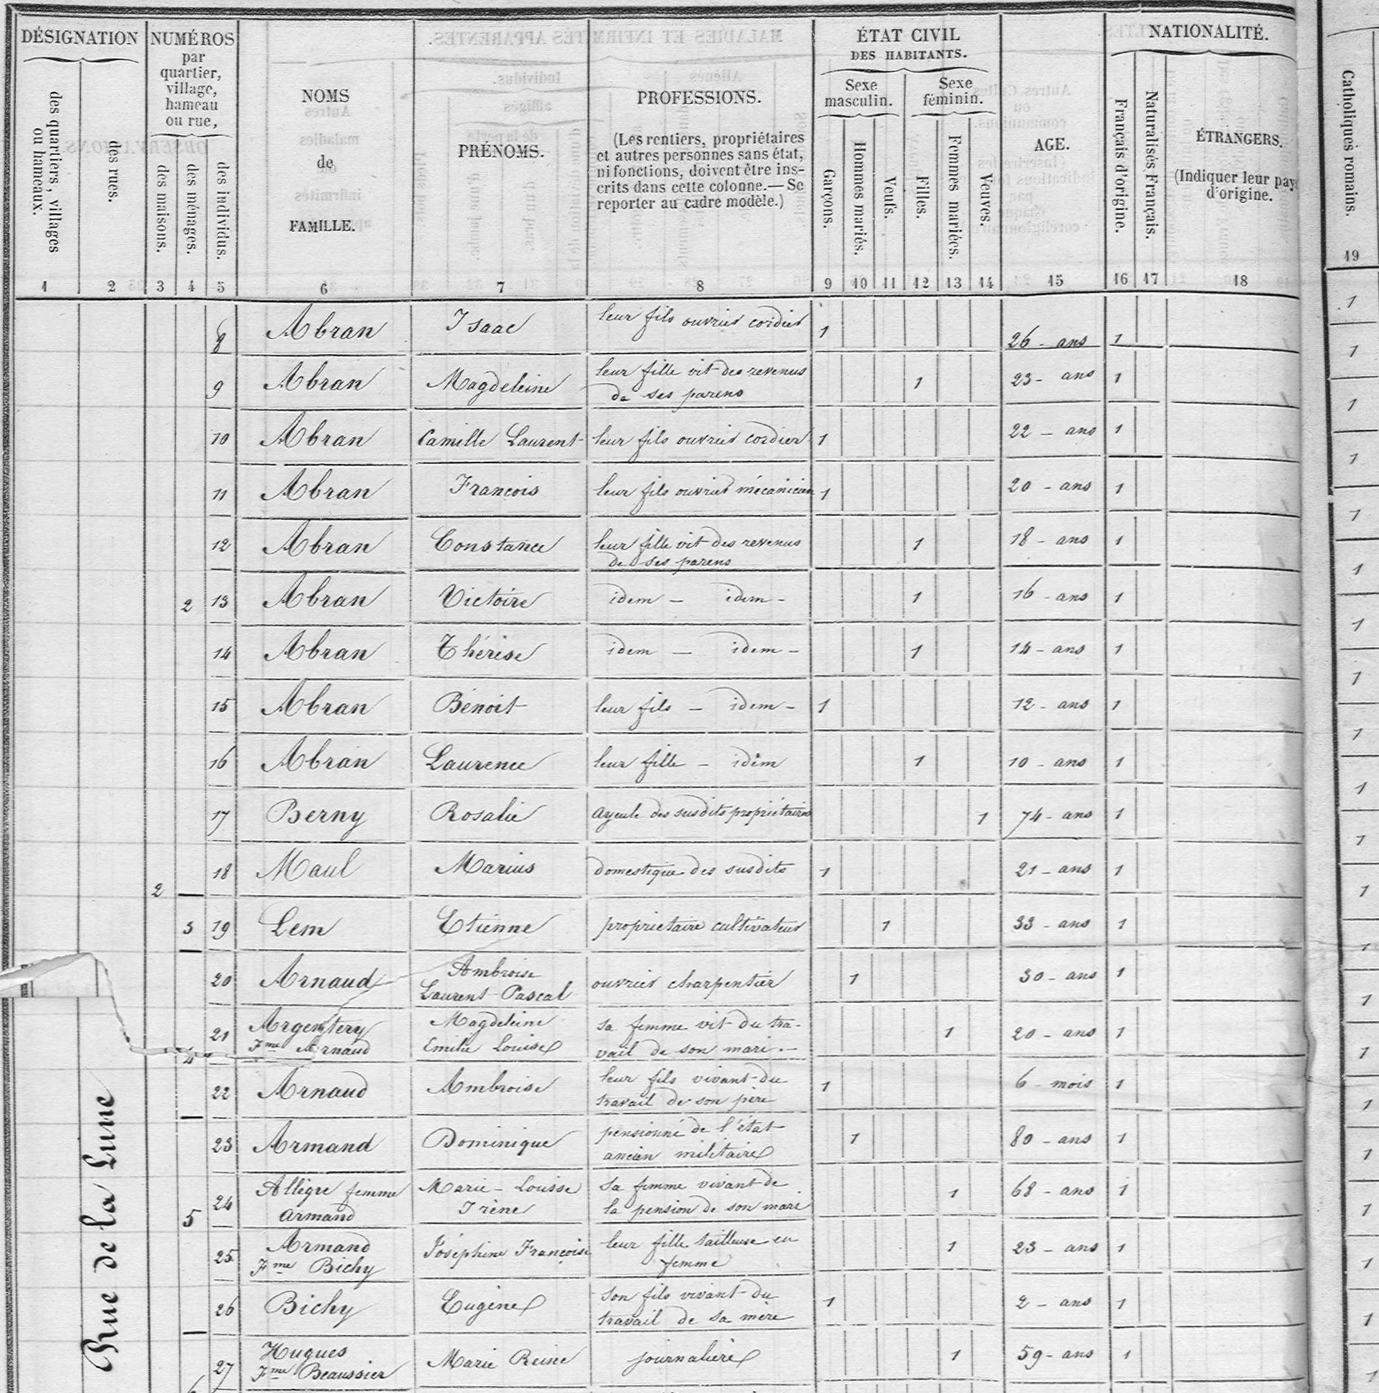 DÉSIGNATION
des quartiers, villages
ou hameaux.
des rues.
NUMÉROS
par
quartier,
village,
hameau
ou rue,
des maisons.
des ménages.
des individus.
NOMS
de
FAMILLE.
PRÉNOMS.
PROFESSIONS.
(Les rentiers, propriétaires
et autres personnes sans état,
ni fonctions, doivent être ins-
crits dans cette colonne.— Se
reporter au cadre modèle.)
ÉTAT CIVIL
DES HABITANTS.
Sexe
masculin.
Sexe
féminin.
Garçons.
Hommes mariés.
Veufs.
Filles.
Femmes mariées.
Veuves.
AGE.
NATIONALITÉ.
Français d'origine.
Naturalisés Français.
ÉTRANGERS.
(Indiquer leur pays
d'origine.
Catholiques romains.
1 2 3 4 5 6 7 8 9 10 11 12 13 14 15 16 17 18 19
8 Abran Isaac leur fils ouvrier cordier 1 26 - ans 1 1
9 Abran Magdeleine leur fille vit des revenus
de ses parens 1 23 - ans 1 1
10 Abran Camille Laurent leur fils ouvrier cordier 1 22 - ans 1 1
11 Abran François leur fils ouvrier mécanicien 1 20 - ans 1 1
12 Abran Constance leur fille vit des revenus
de ses parens 1 18 - ans 1 1
2 13 Abran Victoire idem - idem - 1 16 - ans 1 1
14 Abran Thérèse idem - idem - 1 14 - ans 1 1
15 Abran Benoit leur fils - idem - 1 12 - ans 1 1
16 Abran Laurence leur fille - idem 1 10 - ans 1 1
17 Berny Rosalie ayeule des susdits propriétaires 1 74 - ans 1 1
2 18 Maul Marius domestique des susdits 1 21 - ans 1 1
3 19 Lem Etienne propriétaire cultivateur 1 33 - ans 1 1
20 Arnaud Ambroise
Laurent Pascal ouvrier charpentier 1 30 - ans 1 1
4 21 Argentery
Fme Arnaud Magdeleine
Emilie Louise sa femme vit du tra-
vail de son mari - 1 20 - ans 1 1
22 Arnaud Ambroise leur fils vivant du
travail de son père 1 6 - mois 1 1
23 Armand Dominique pensionné de l'état
ancien militaire 1 80 - ans 1 1
5 24 Allègre femme
Armand Marie - Louise
Irène sa femme vivant de
la pension de son mari 1 68 - ans 1 1
25 Armand
Fme Bichy Joséphine Françoise leur fille tailleuse en
femme 1 23 - ans 1 1
26 Bichy Eugène son fils vivant du
travail de sa mère 1 2 - ans 1 1
27 Hugues
Fme Beaussier Marie Reine journalière 1 59 - ans 1 1
Rue de la Lune